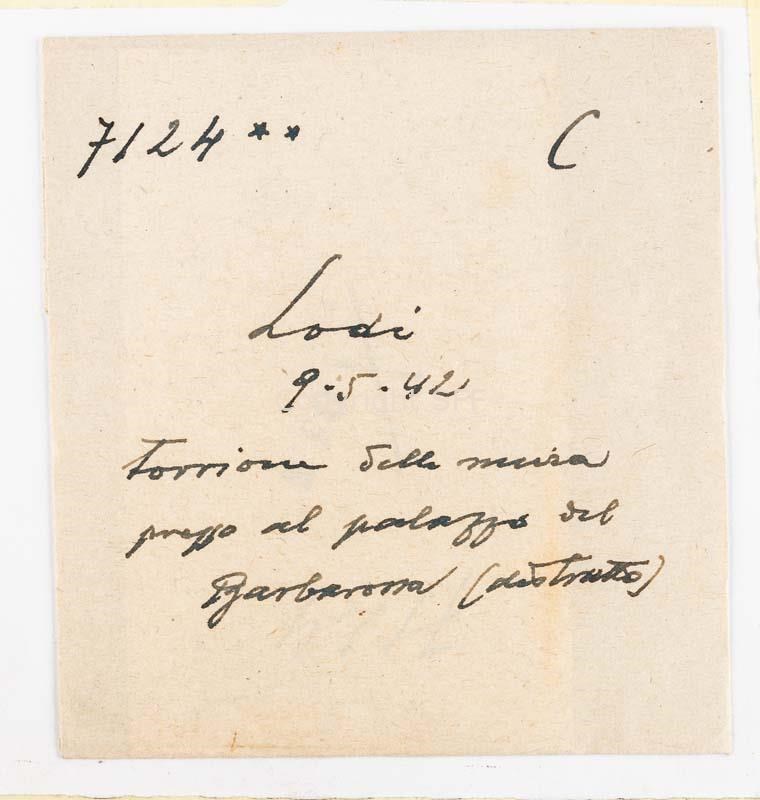 7124 ** C
Lodi
9.5.42
torrione delle mura
presso al palazzo del
Barbarossa (distrutto)